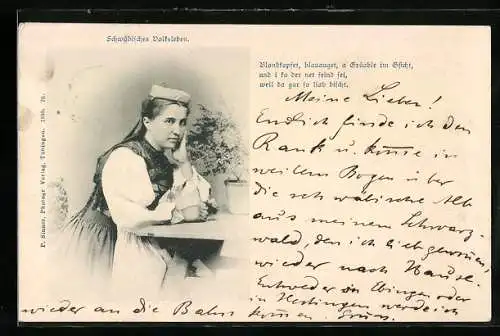 Schwäbisches Volksleben.
Blondkopfet, blauauget, a Grüeble im Gsicht,
und i ka der net feind sei,
weil da gar so liab bischt.
P. Sinner, Photogr. Verlag, Tübingen. 1899. 70.
Meine Lieben!
Endlich finde ich den
Rank u. komme in
weitem Bogen über
die schwäbische Alb
aus meinem Schwarz-
wald, den ich lieb gewonnen,
wieder nach Hause.
Entweder in Ebingen oder
in Hechingen werde ich
wieder an die Bahn kommen. Gruss.